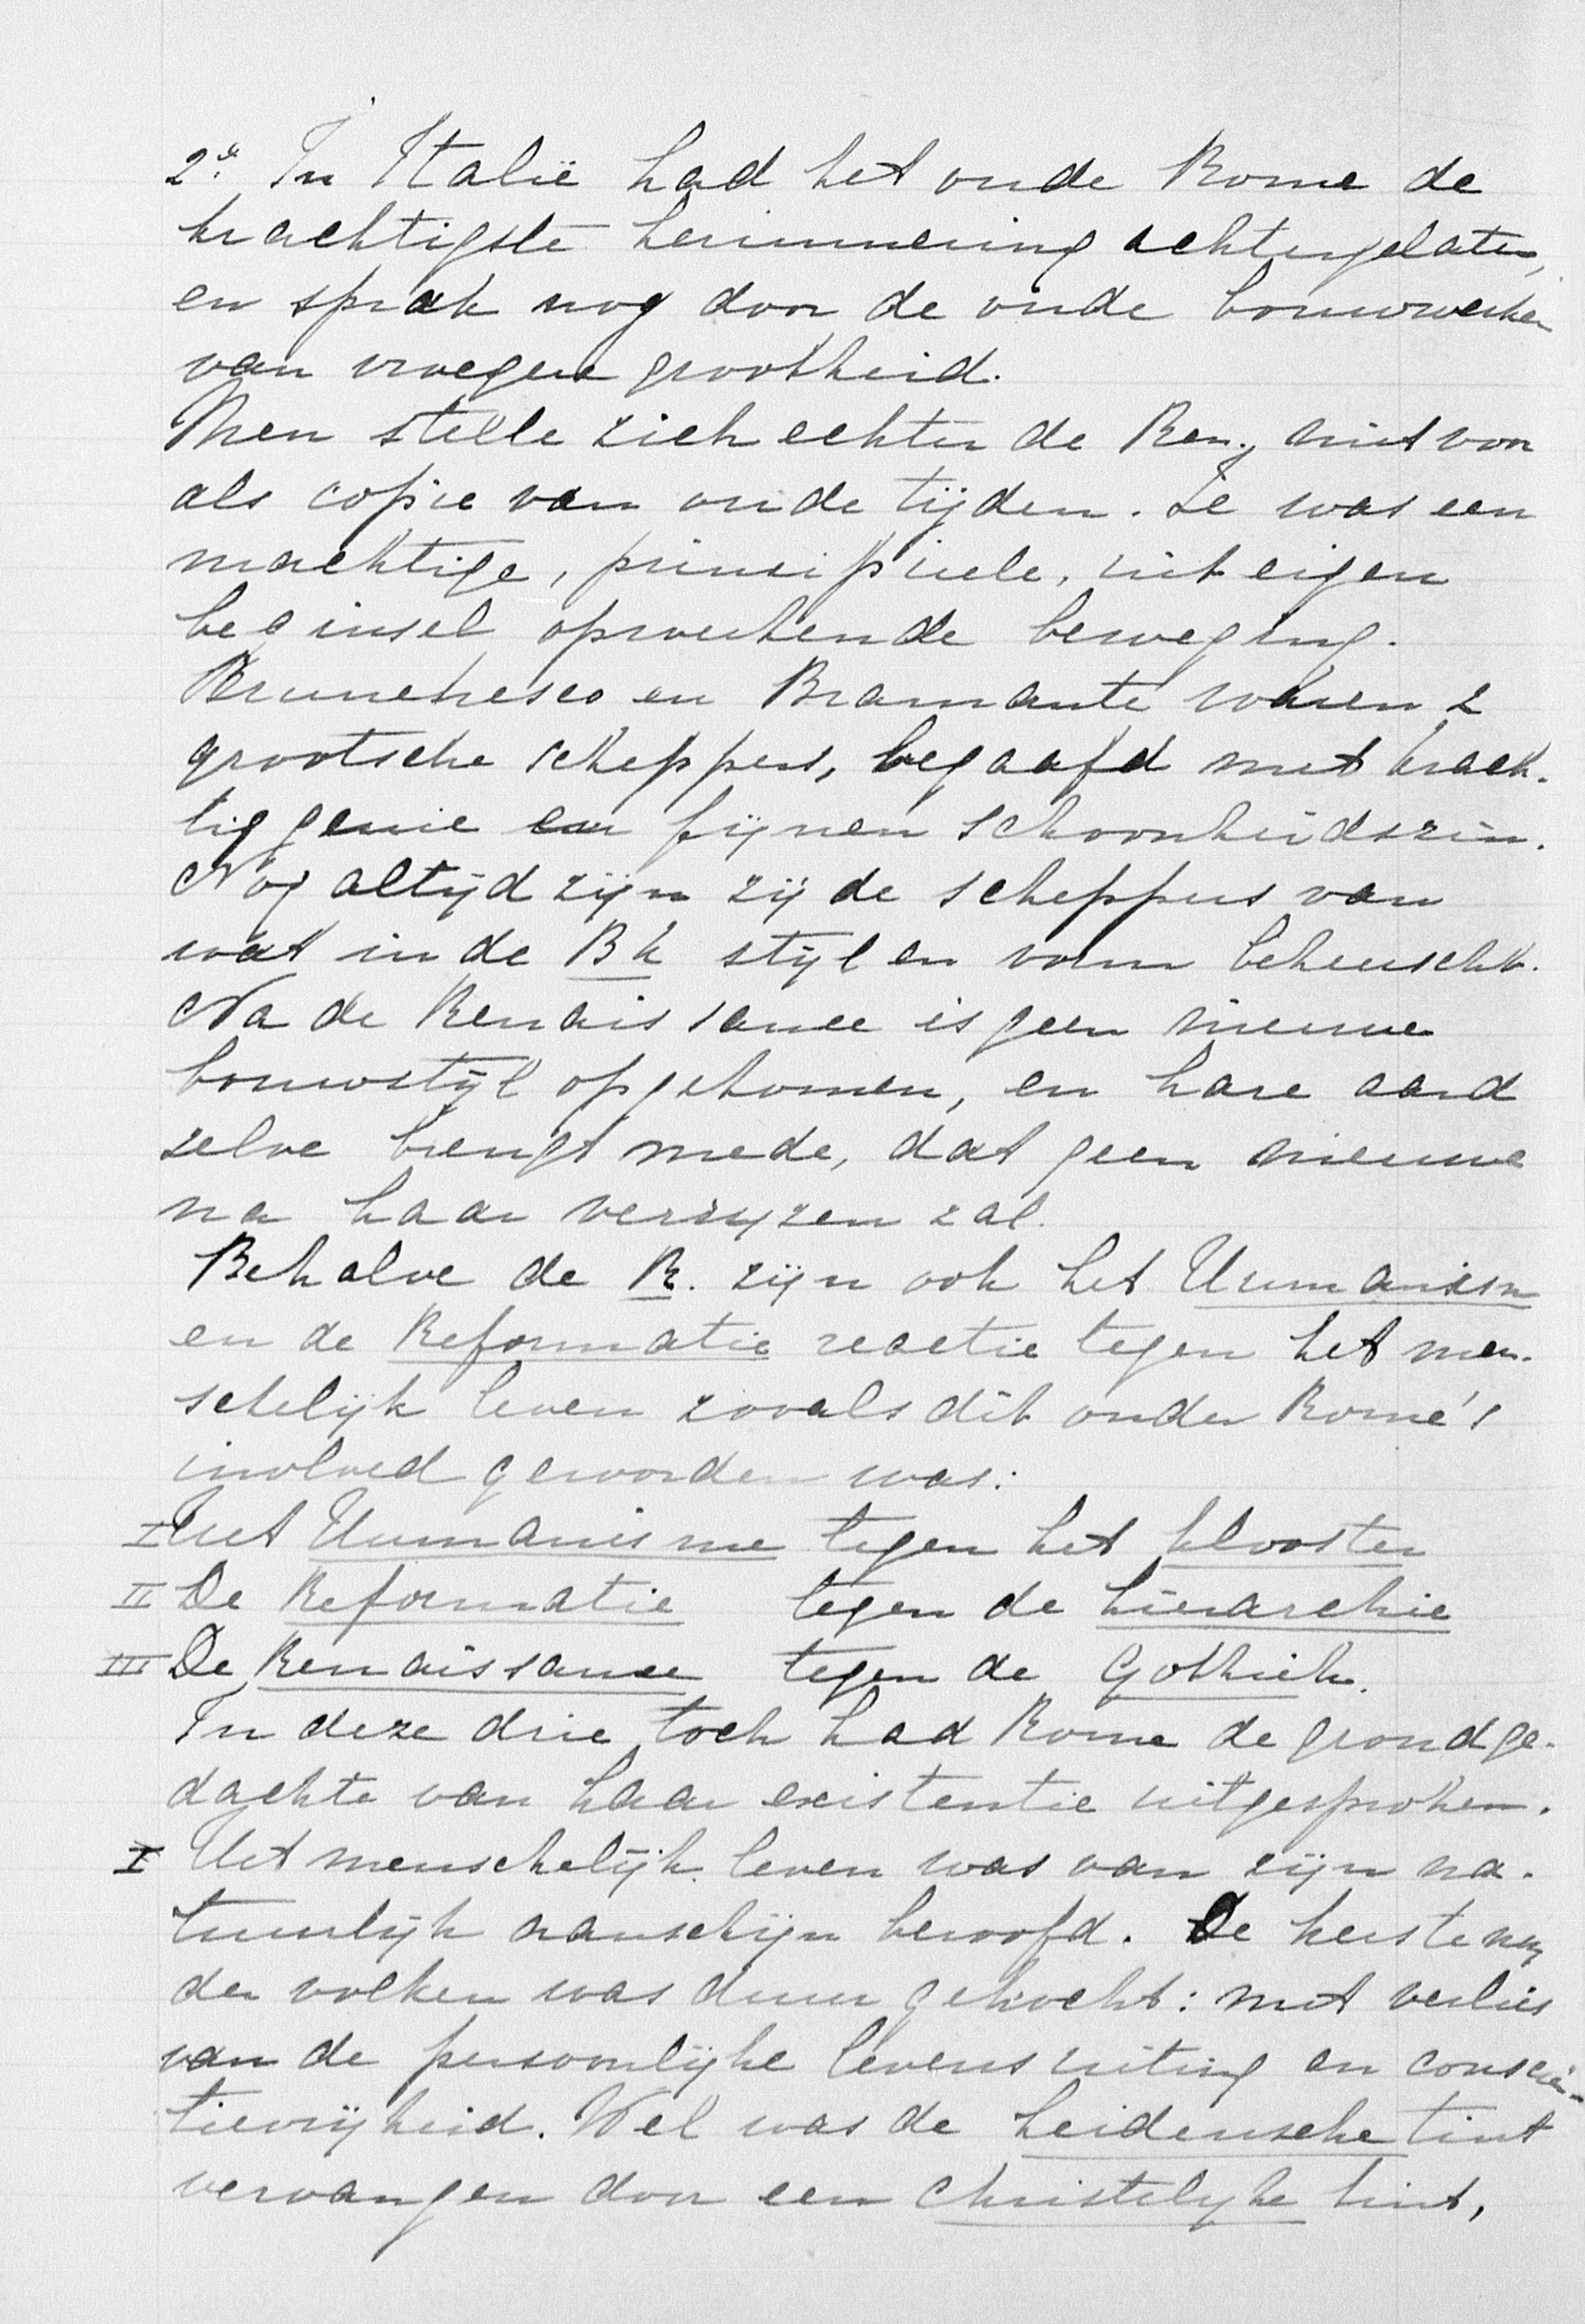 2e. In Italië had het oude Rome de
krachtigste herinnering achtergelaten,
en sprak nog door de oude bouwwerken
van vroegere grootheid.
Men stelle zich echter de Ren. niet voor
als copie van oude tijden. Ze was een
machtige, principiele, uit eigen
beginsel opwekende beweging.
Brunelresco en Bramante waren 2
grootsche scheppers, begaafd met krach-
tig genie en fijnen schoonheidszin.
Nog altijd zijn zij de scheppers van
wat in de Bk stijl en vorm beheerscht.
Na de Renaissance is geen nieuwe
bouwstijl opgekomen, en hare aard
zelve brengt mede, dat geen nieuwe
na haar verrijzen zal.
Behalve de R. zijn ook het Humanism
en de Reformatie reactie tegen het men-
schelijk leven zooals dit onder Rome's
invloed geworden was:
I Het Humanisme tegen het klooster
II De Reformatie tegen de hierarchie
III De Renaissance tegen de Gothiek.
In deze drie toch had Rome de grondge-
dachte van haar existentie uitgesproken.
I Het menschelijk leven was van zijn na-
tuurlijk aanschijn beroofd. De kerstening
der volken was duur gekocht: met verlies
van de persoonlijke levensuiting en conscien-
tievrijheid. Wel was de heidensche tint
vervangen door een christelijke tint,